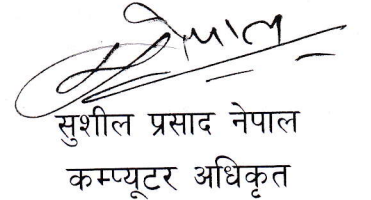 सुशील प्रसाद नेपाल
कम्प्यूटर अधिकृत